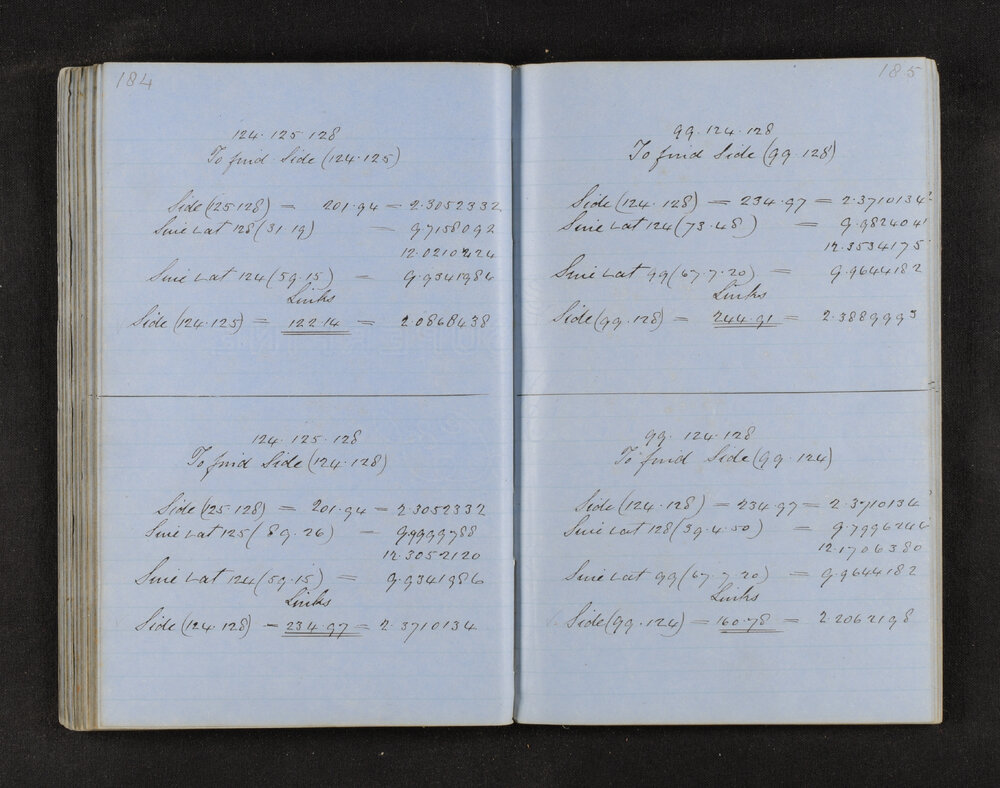 184
124 · 125 · 128
To find Side (124·125)
Side (125·128) = 201·94 = 2.3052332
Sine L at 128 (31·19) = 9.7158092
12.0210424
Sine L at 124 (59·15) = 9.9341986
Links
Side (124·125) = 122·14 = 2.0868438
124 · 125 · 128
To find Side (124·128)
Side (125·128) = 201·94 = 2.3052332
Sine L at 125 (89·26) = 9.9999788
12.3052120
Sine L at 124 (59·15) = 9.9341986
Links
Side (124·128) = 234·97 = 2.3710134
185
99 · 124 · 128
To find Side (99·128)
Side (124·128) = 234·97 = 2.3710134
Sine L at 124 (73·48) = 9.9824041
12.3534175
Sine L at 99 (67·7·20) = 9.9644182
Links
Side (99·128) = 244·91 = 2.3889993
99 · 124 · 128
To find Side (99·124)
Side (124·128) = 234·97 = 2.3710134
Sine L at 128 (39·4·50) = 9.7996246
12.1706380
Sine L at 99 (67·7·20) = 9.9644182
Links
Side (99·124) = 160·78 = 2.2062198